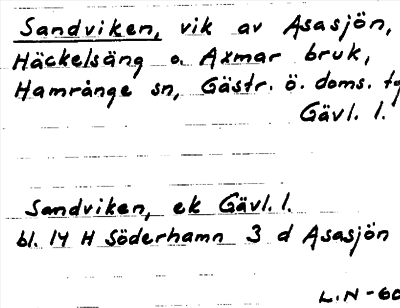 Sandviken, vik av Asasjön,
Häckelsäng o. Axmar bruk,
Hamrånge sn, Gästr. ö. doms. tg
Gävl. l.
Sandviken, ek Gävl. l.
bl. 14 H Söderhamn 3 d Asasjön
L.N-60